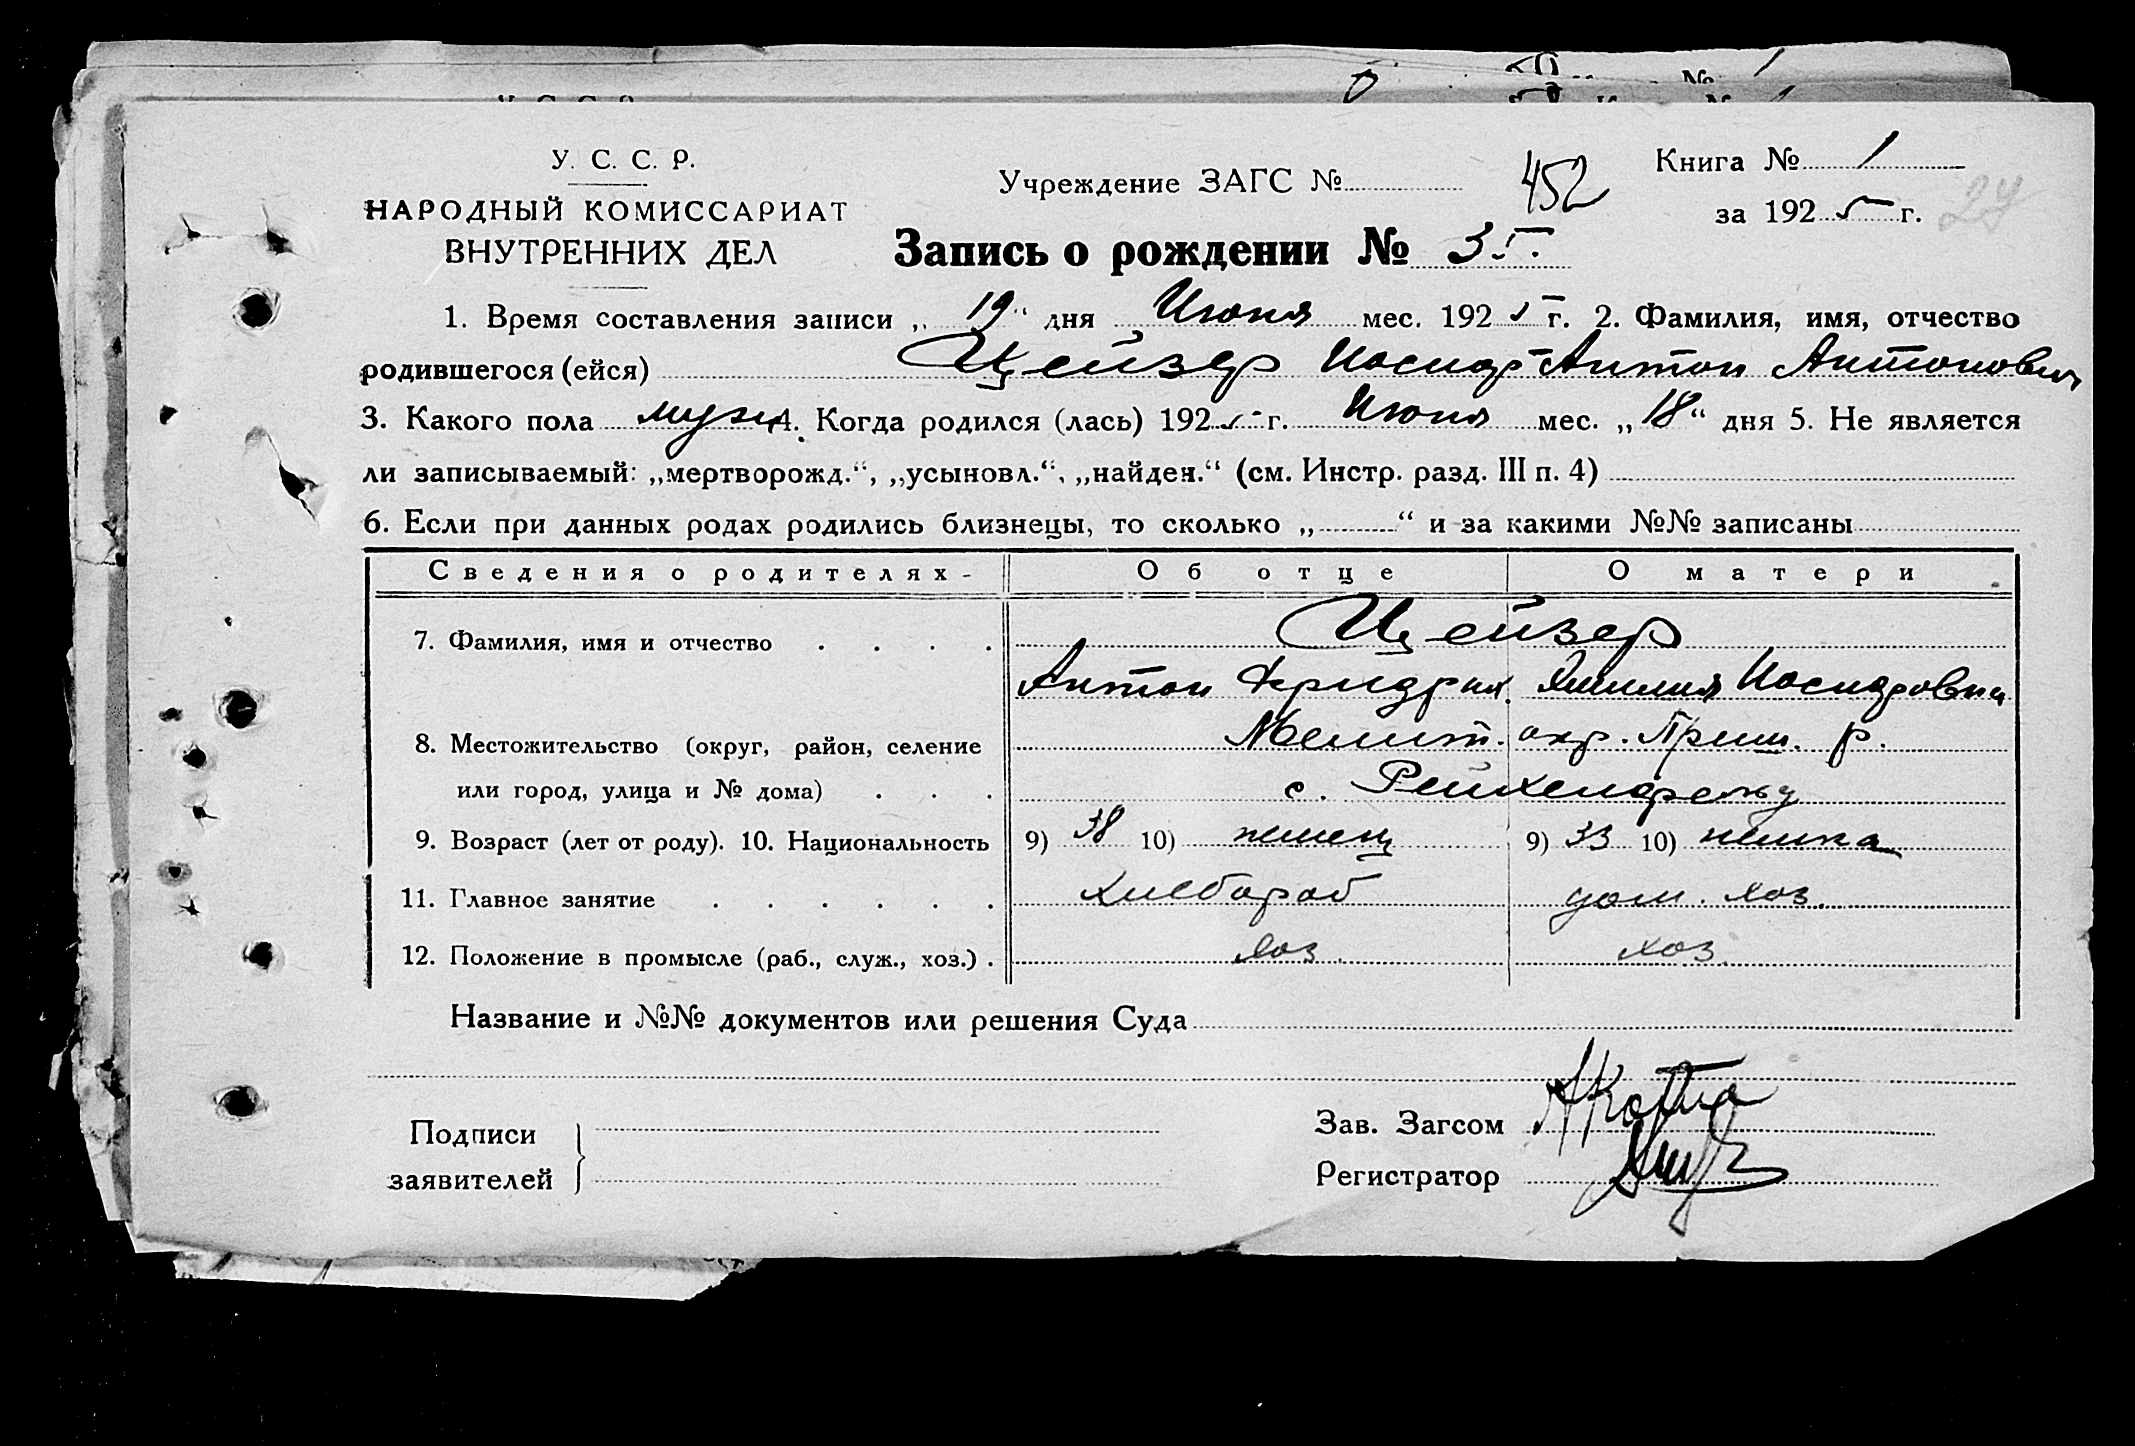 У. С. С. Р.
НАРОДНЫЙ КОМИССАРИАТ
ВНУТРЕННИХ ДЕЛ
Учреждение ЗАГС №
452
Книга № 1
за 1925 г.
27
Запись о рождении № 35.
1. Время составления записи „19“ дня Июня мес. 1925 г. 2. Фамилия, имя, отчество
родившегося (ейся) Цейзер Иосиф-Антон Антонович
3. Какого пола муж 4. Когда родился (лась) 1925 г. Июня мес. „18“ дня 5. Не является
ли записываемый: „мертворожд.“, „усыновл.“, „найден.“ (см. Инстр. разд. III п. 4)
6. Если при данных родах родились близнецы, то сколько „ “ и за какими №№ записаны
Сведения о родителях - Об отце О матери
7. Фамилия, имя и отчество Цейзер
Антон Фридрих. Эмилия Иосифовна
8. Местожительство (округ, район, селение Мелит. окр. Приш. р.
или город, улица и № дома) с. Рейхенфельд
9. Возраст (лет от роду). 10. Национальность 9) 38 10) немец 9) 33 10) немка
11. Главное занятие хлебороб дом. хоз.
12. Положение в промысле (раб., служ., хоз.) хоз. хоз.
Название и №№ документов или решения Суда
Подписи
заявителей
Зав. Загсом
Регистратор